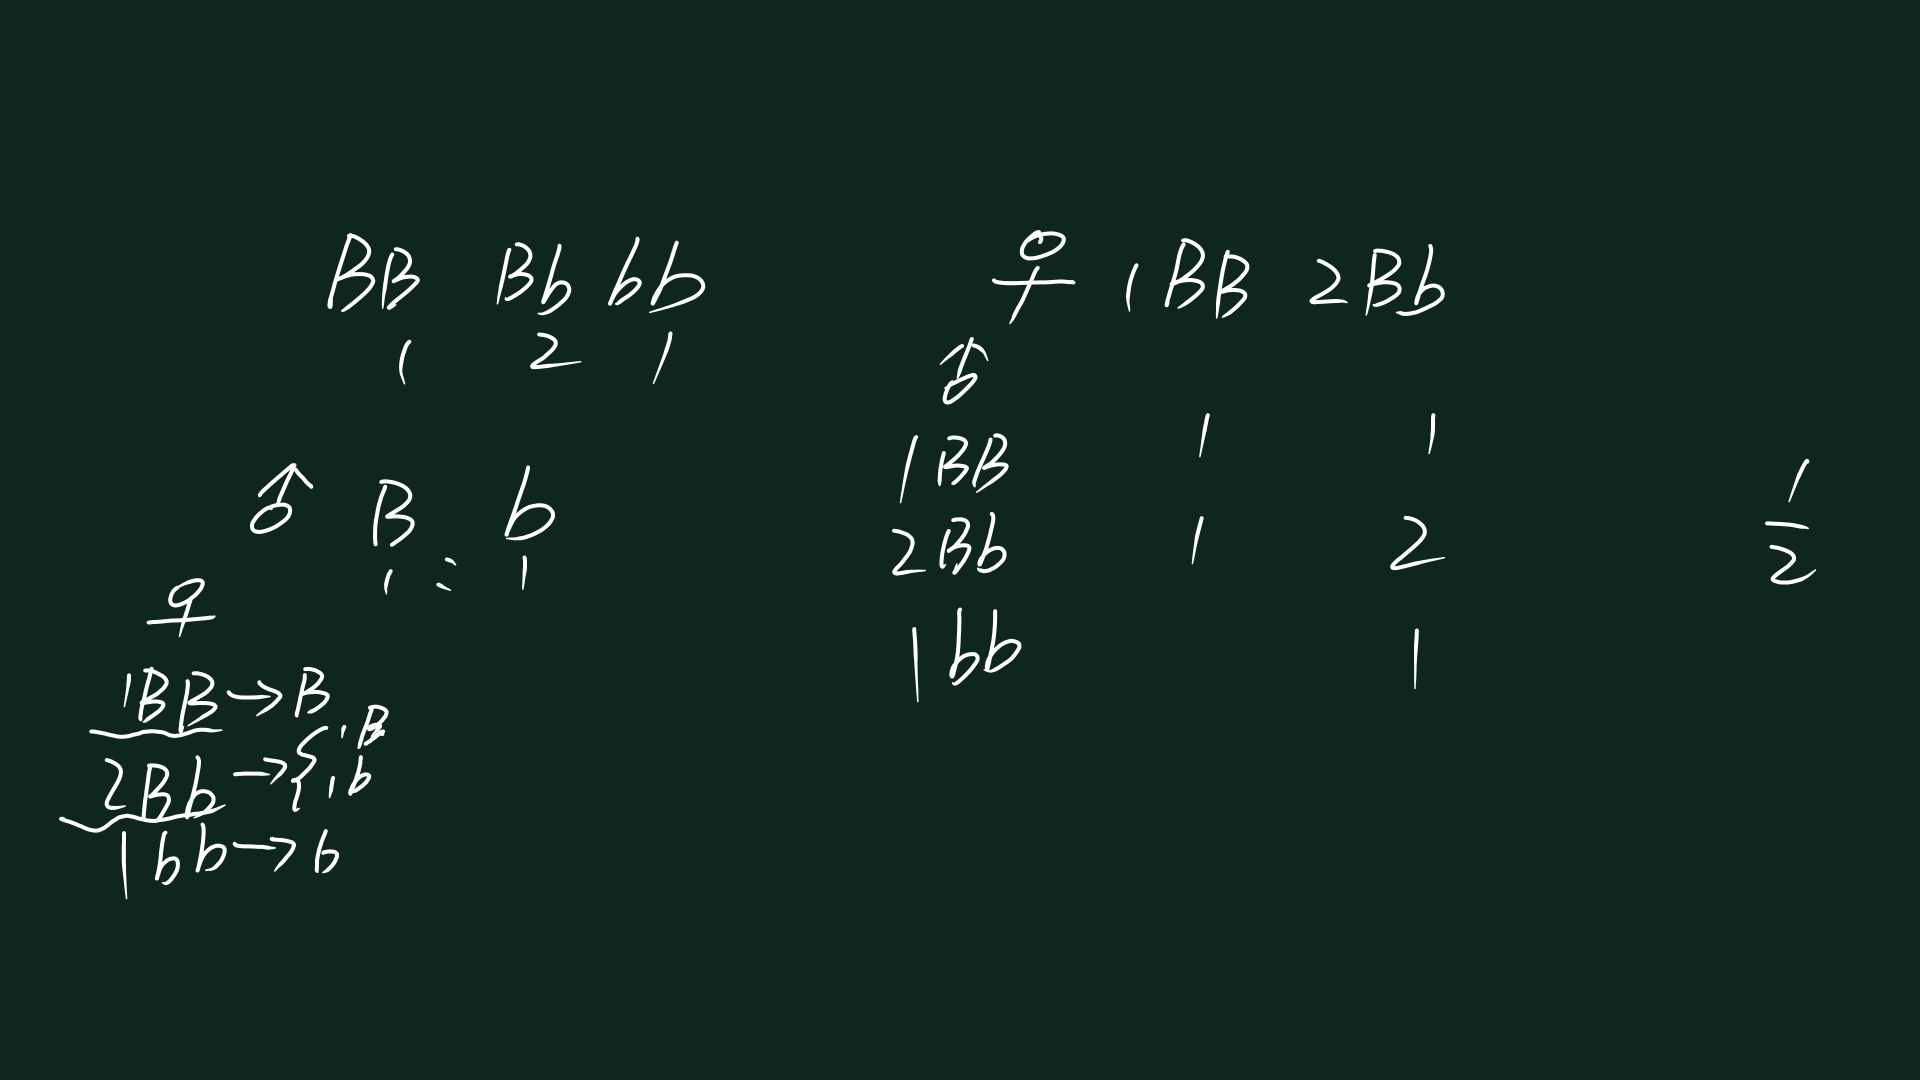 BB Bb bb
1 2 1
♂ B b
1 : 1
♀
1BB → B
2Bb → { 1B
1b
1bb → b
♀ 1BB 2Bb
♂
1BB 1 1
2Bb 1 2
1bb 1
1/2